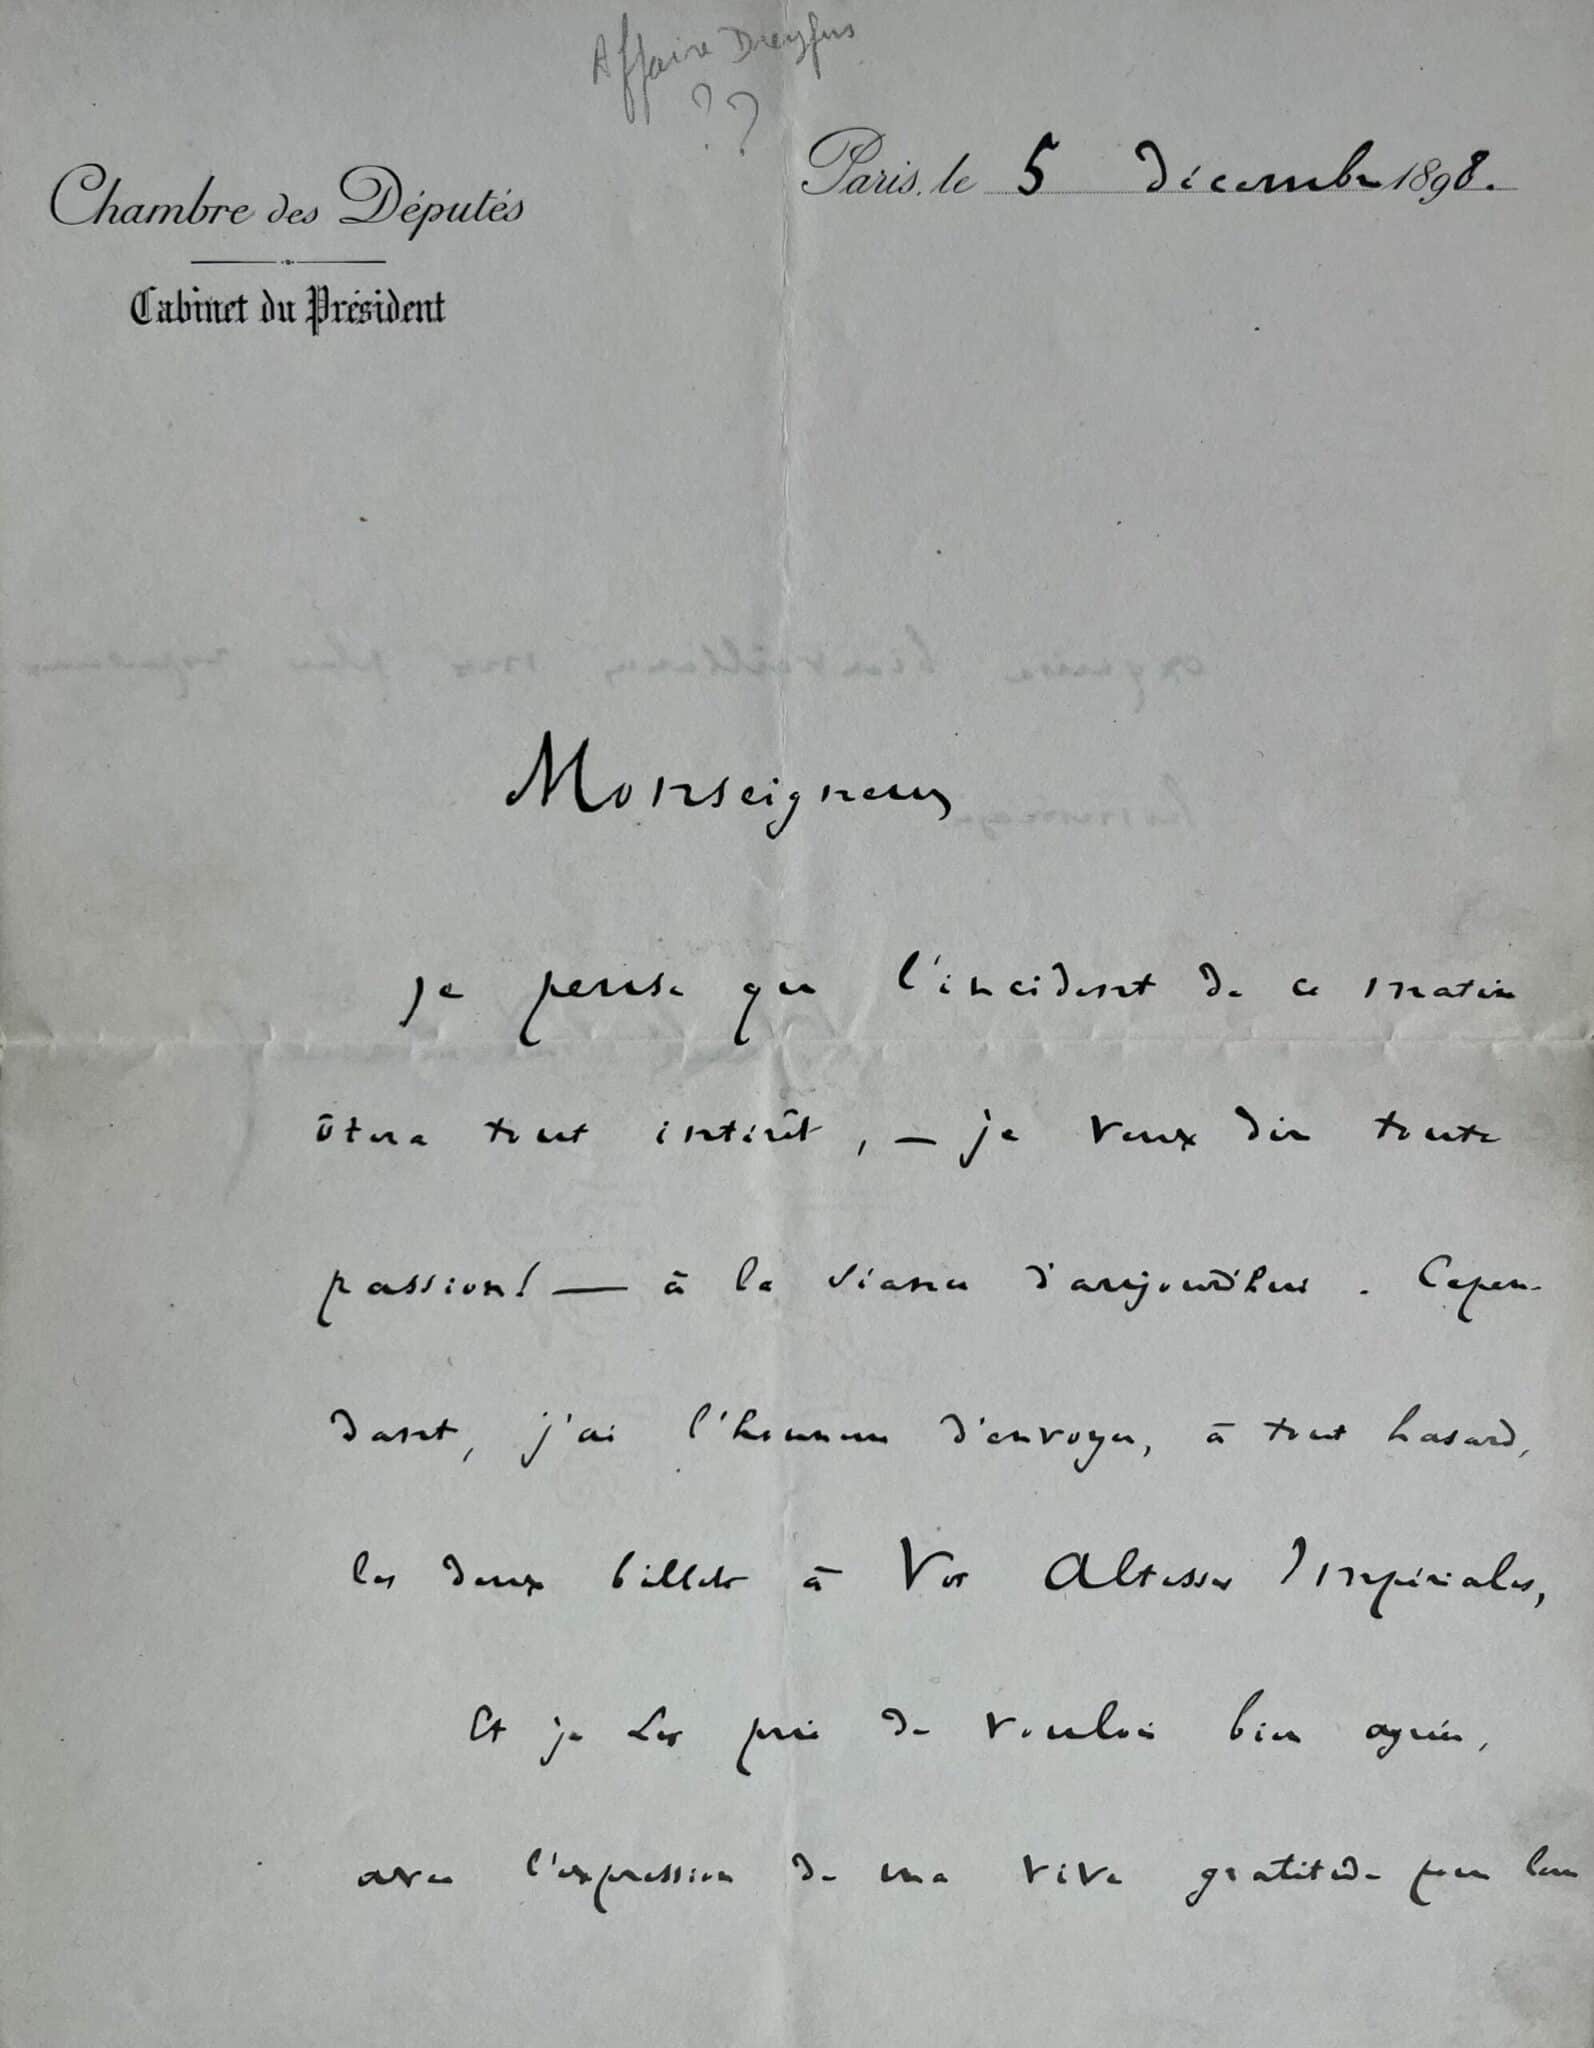 Affaire Dreyfus
??
Paris, le 5 décembre 1898.
Chambre des Députés
Cabinet du Président
Monseigneur
je pense que l'incident de ce matin
ôtera tout intérêt, — je veux dire toute
passion! — à la séance d'aujourd'hui. Cepen-
dant, j'ai l'honneur d'envoyer, à tout hasard,
les deux billets à Vos Altesses Impériales,
Et je Les prie de vouloir bien agréer,
avec l'expression de ma vive gratitude pour leur
exquise bienveillance, mes plus respectueux
hommages